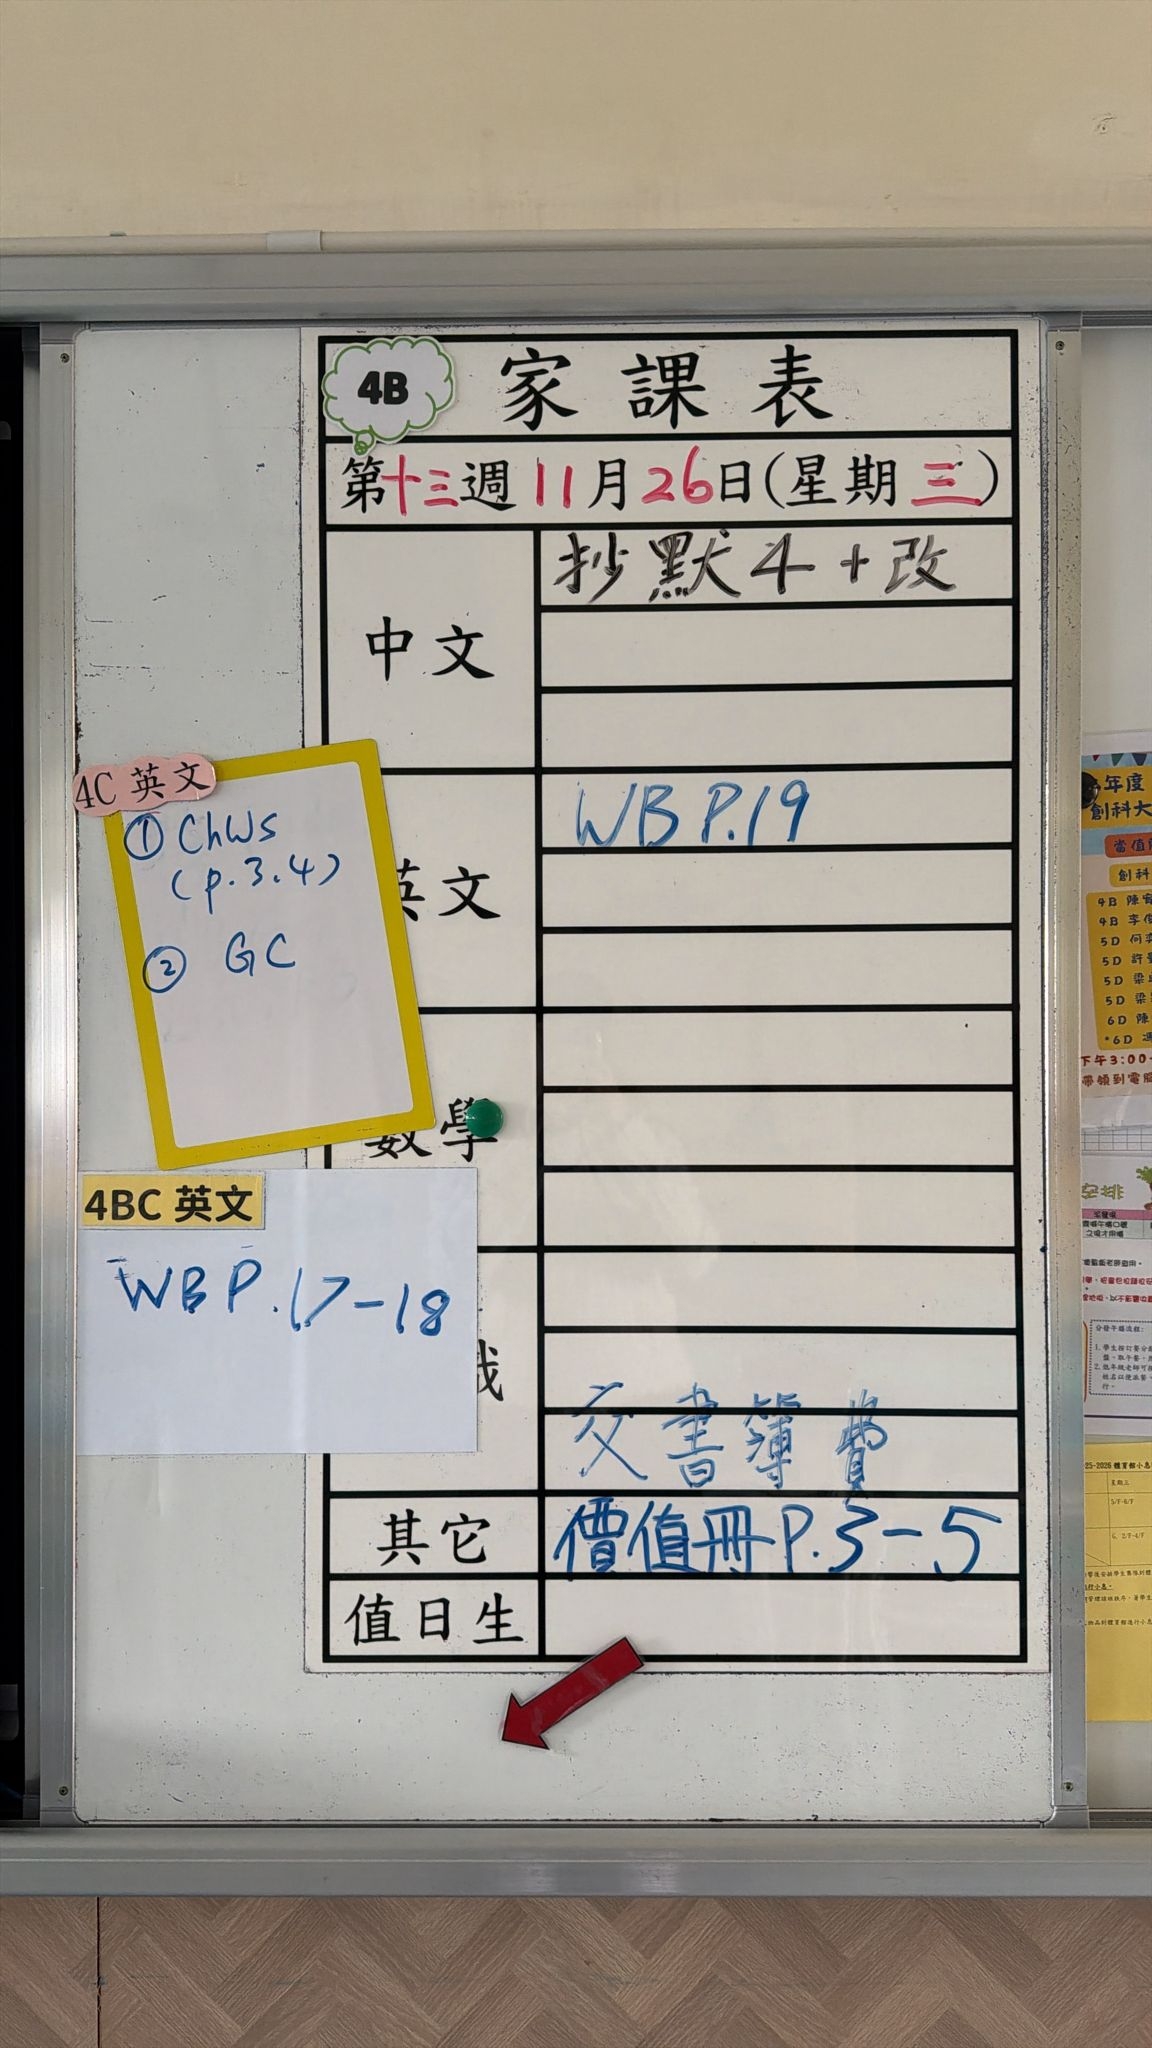 4B
家課表
第十三週11月26日(星期三)
中文
抄默4+改
英文
WB P.19
4C 英文
① ChWs
(p.3.4)
② GC
數學
4BC 英文
WB P.17-18
交書簿費
其它
價值冊P.3-5
值日生
年度
創科大
創科
4B 陳
4B 李
5D 何
5D 許
5D 梁
5D 梁
6D 陳
*6D 馮
下午3:00-
帶領到電腦
安排
分發午膳流程:
25-2026 體育館小息
星期三
5/F-6/F